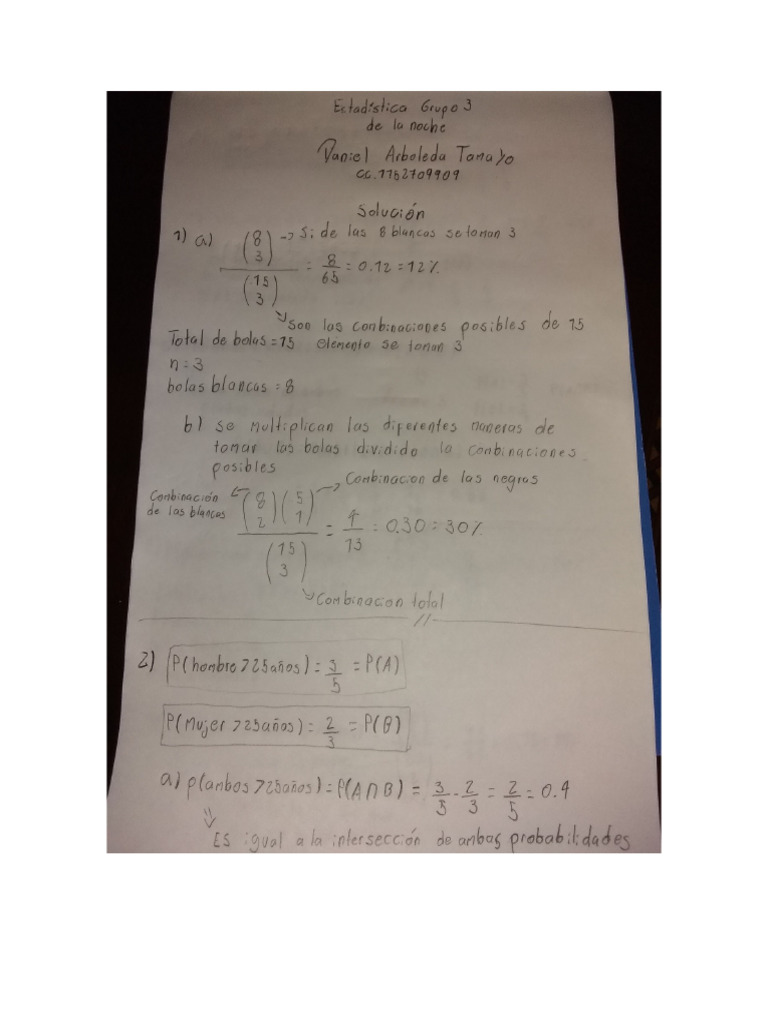 Estadística Grupo 3
de la noche
Daniel Arboleda Tamayo
cc.1152709909
Solución
1) a) (8 3) -> Si de las 8 blancas se toman 3
/ (15 3) = 8/65 = 0.12 = 12%
Son las combinaciones posibles de 15
Total de bolas = 15 elemento se toman 3
n = 3
bolas blancas = 8
b) se multiplican las diferentes maneras de
tomar las bolas dividido la combinaciones
posibles
Combinacion de las negras
Combinación de las blancas
(8 2)(5 1) / (15 3) = 4/13 = 0.30 = 30%
Combinacion total
//
2) P(hombre > 25 años) = 3/5 = P(A)
P(Mujer > 25 años) = 2/3 = P(B)
a) p(ambos > 25 años) = P(A∩B) = 3/5 . 2/3 = 2/5 = 0.4
Es igual a la intersección de ambas probabilidades